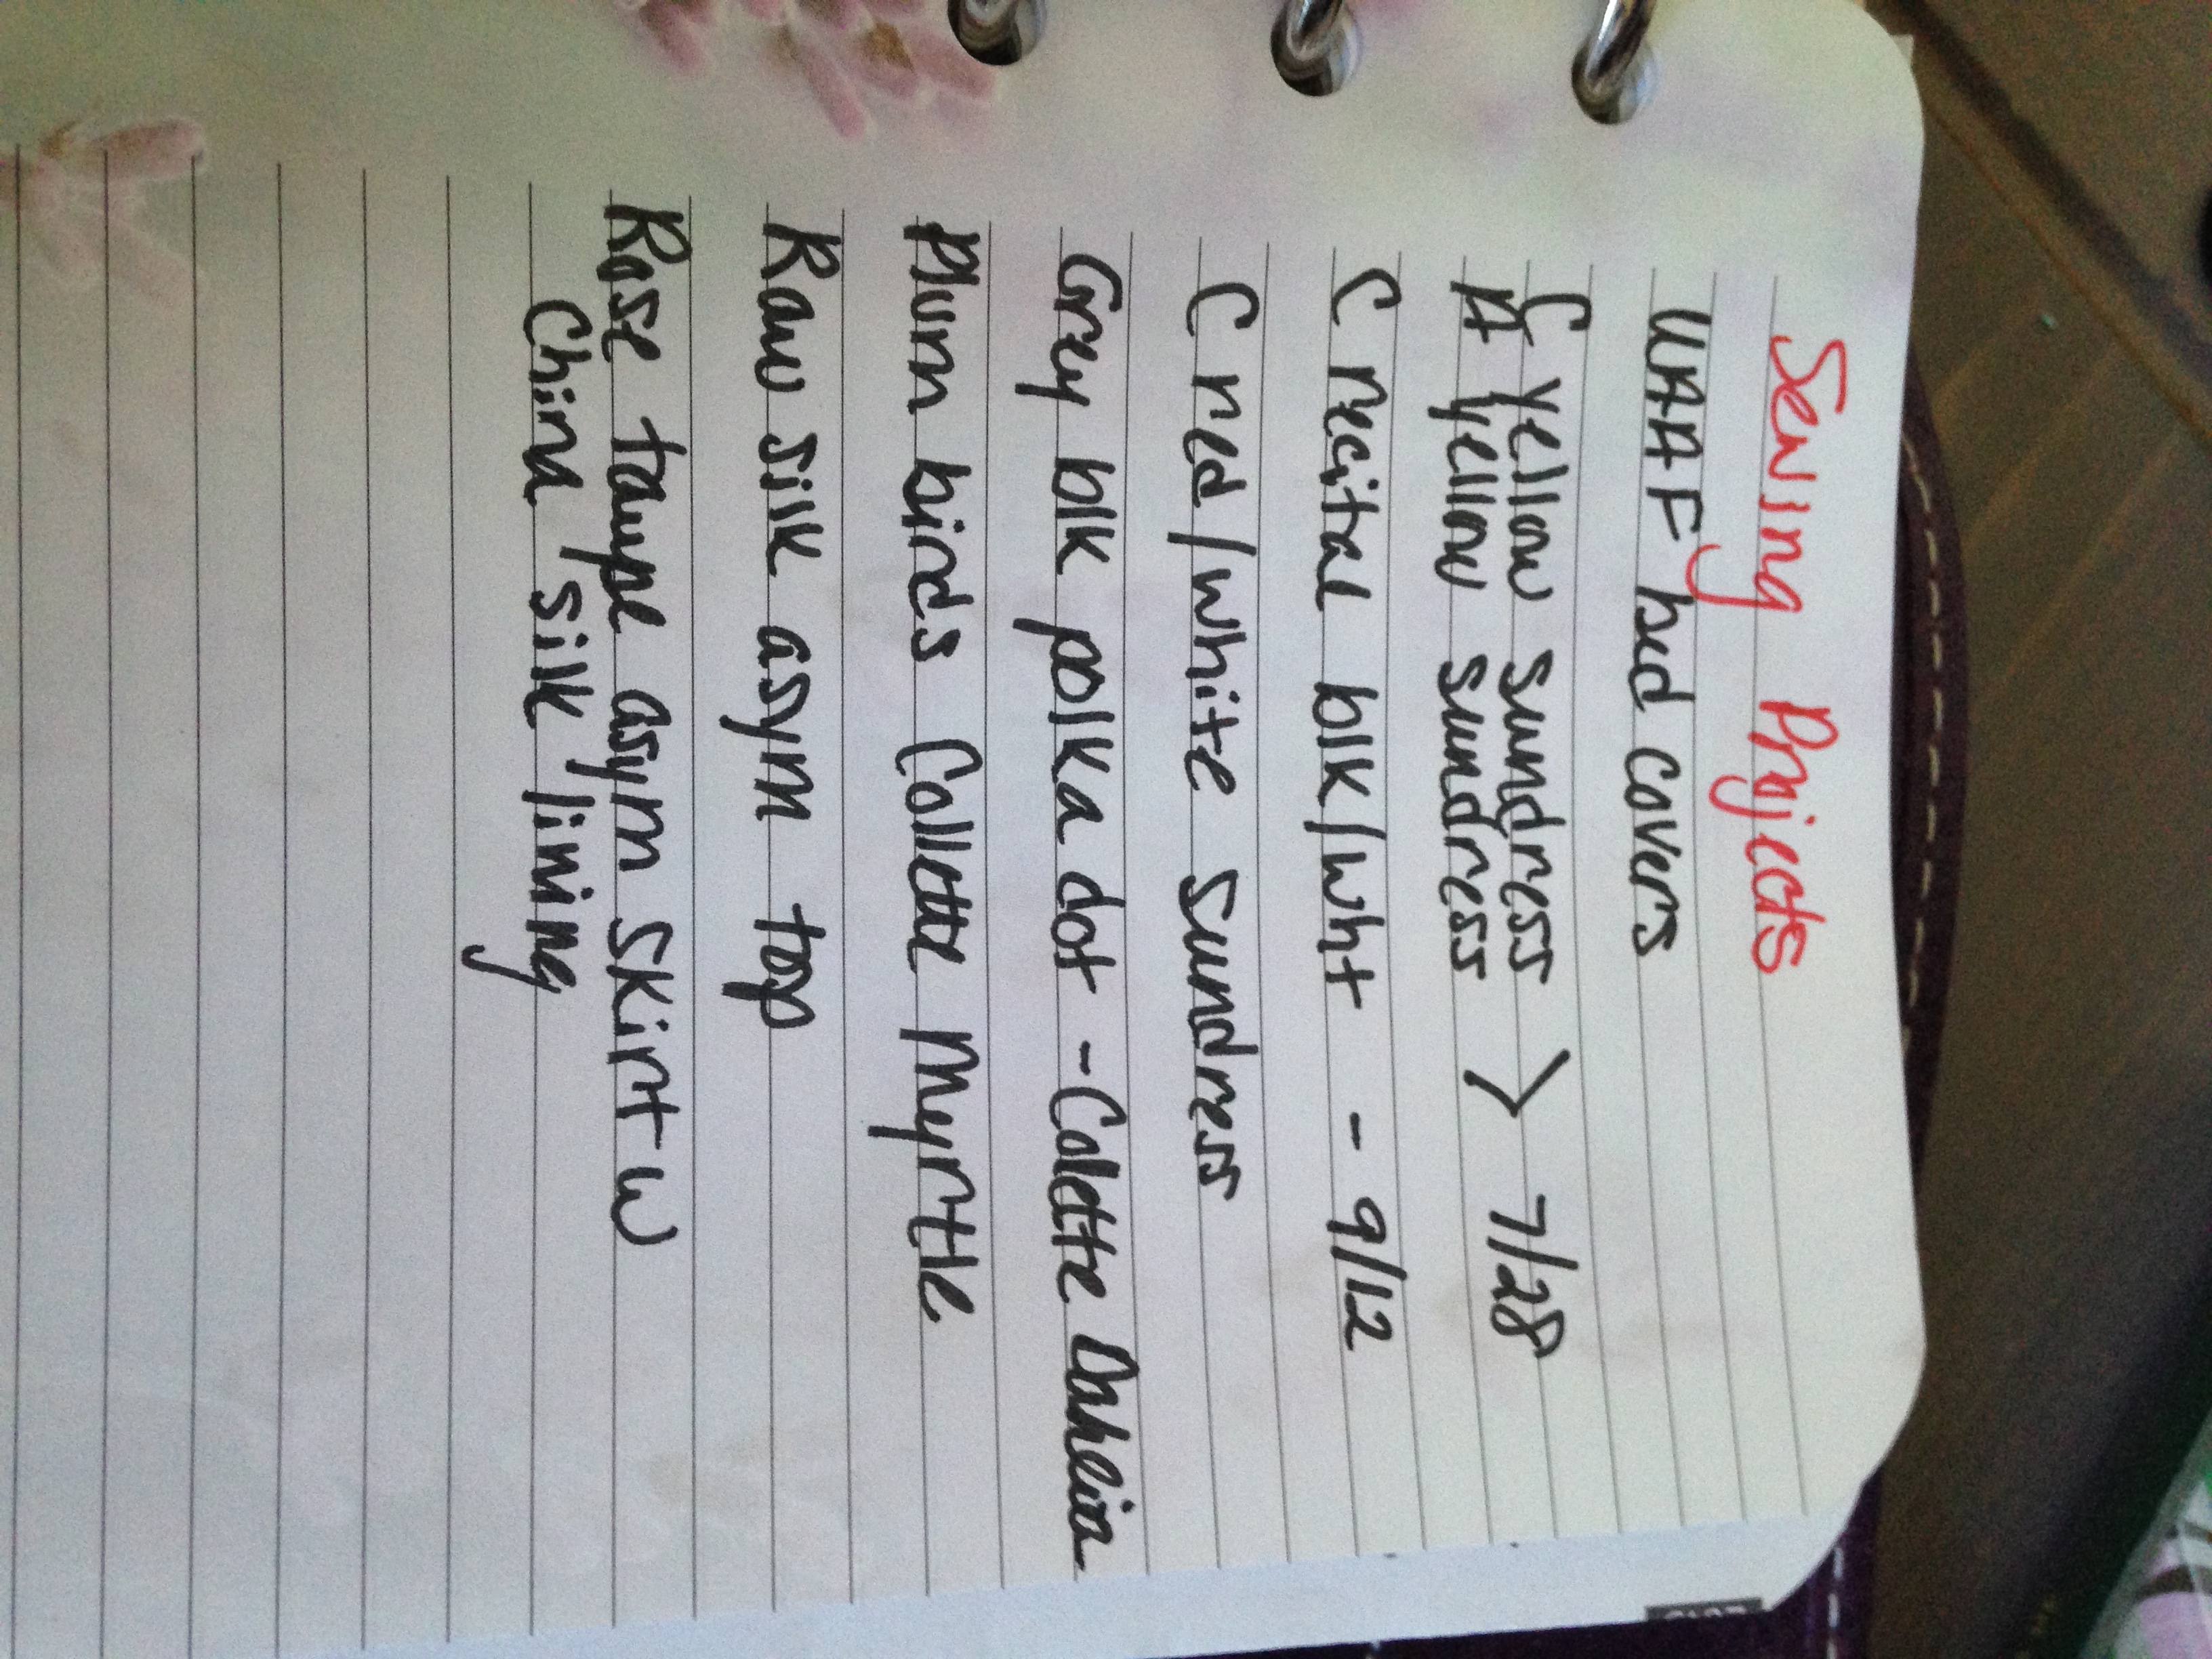 Sewing Projects
UAAF bed covers
C yellow sundress
A yellow sundress > 7/28
C recital blk/wht - 9/12
C red/white sundress
Grey blk polka dot - Colette Dahlia
Plum birds Collette Myrtle
Raw silk asym top
Rose taupe asym skirt w
China silk lining